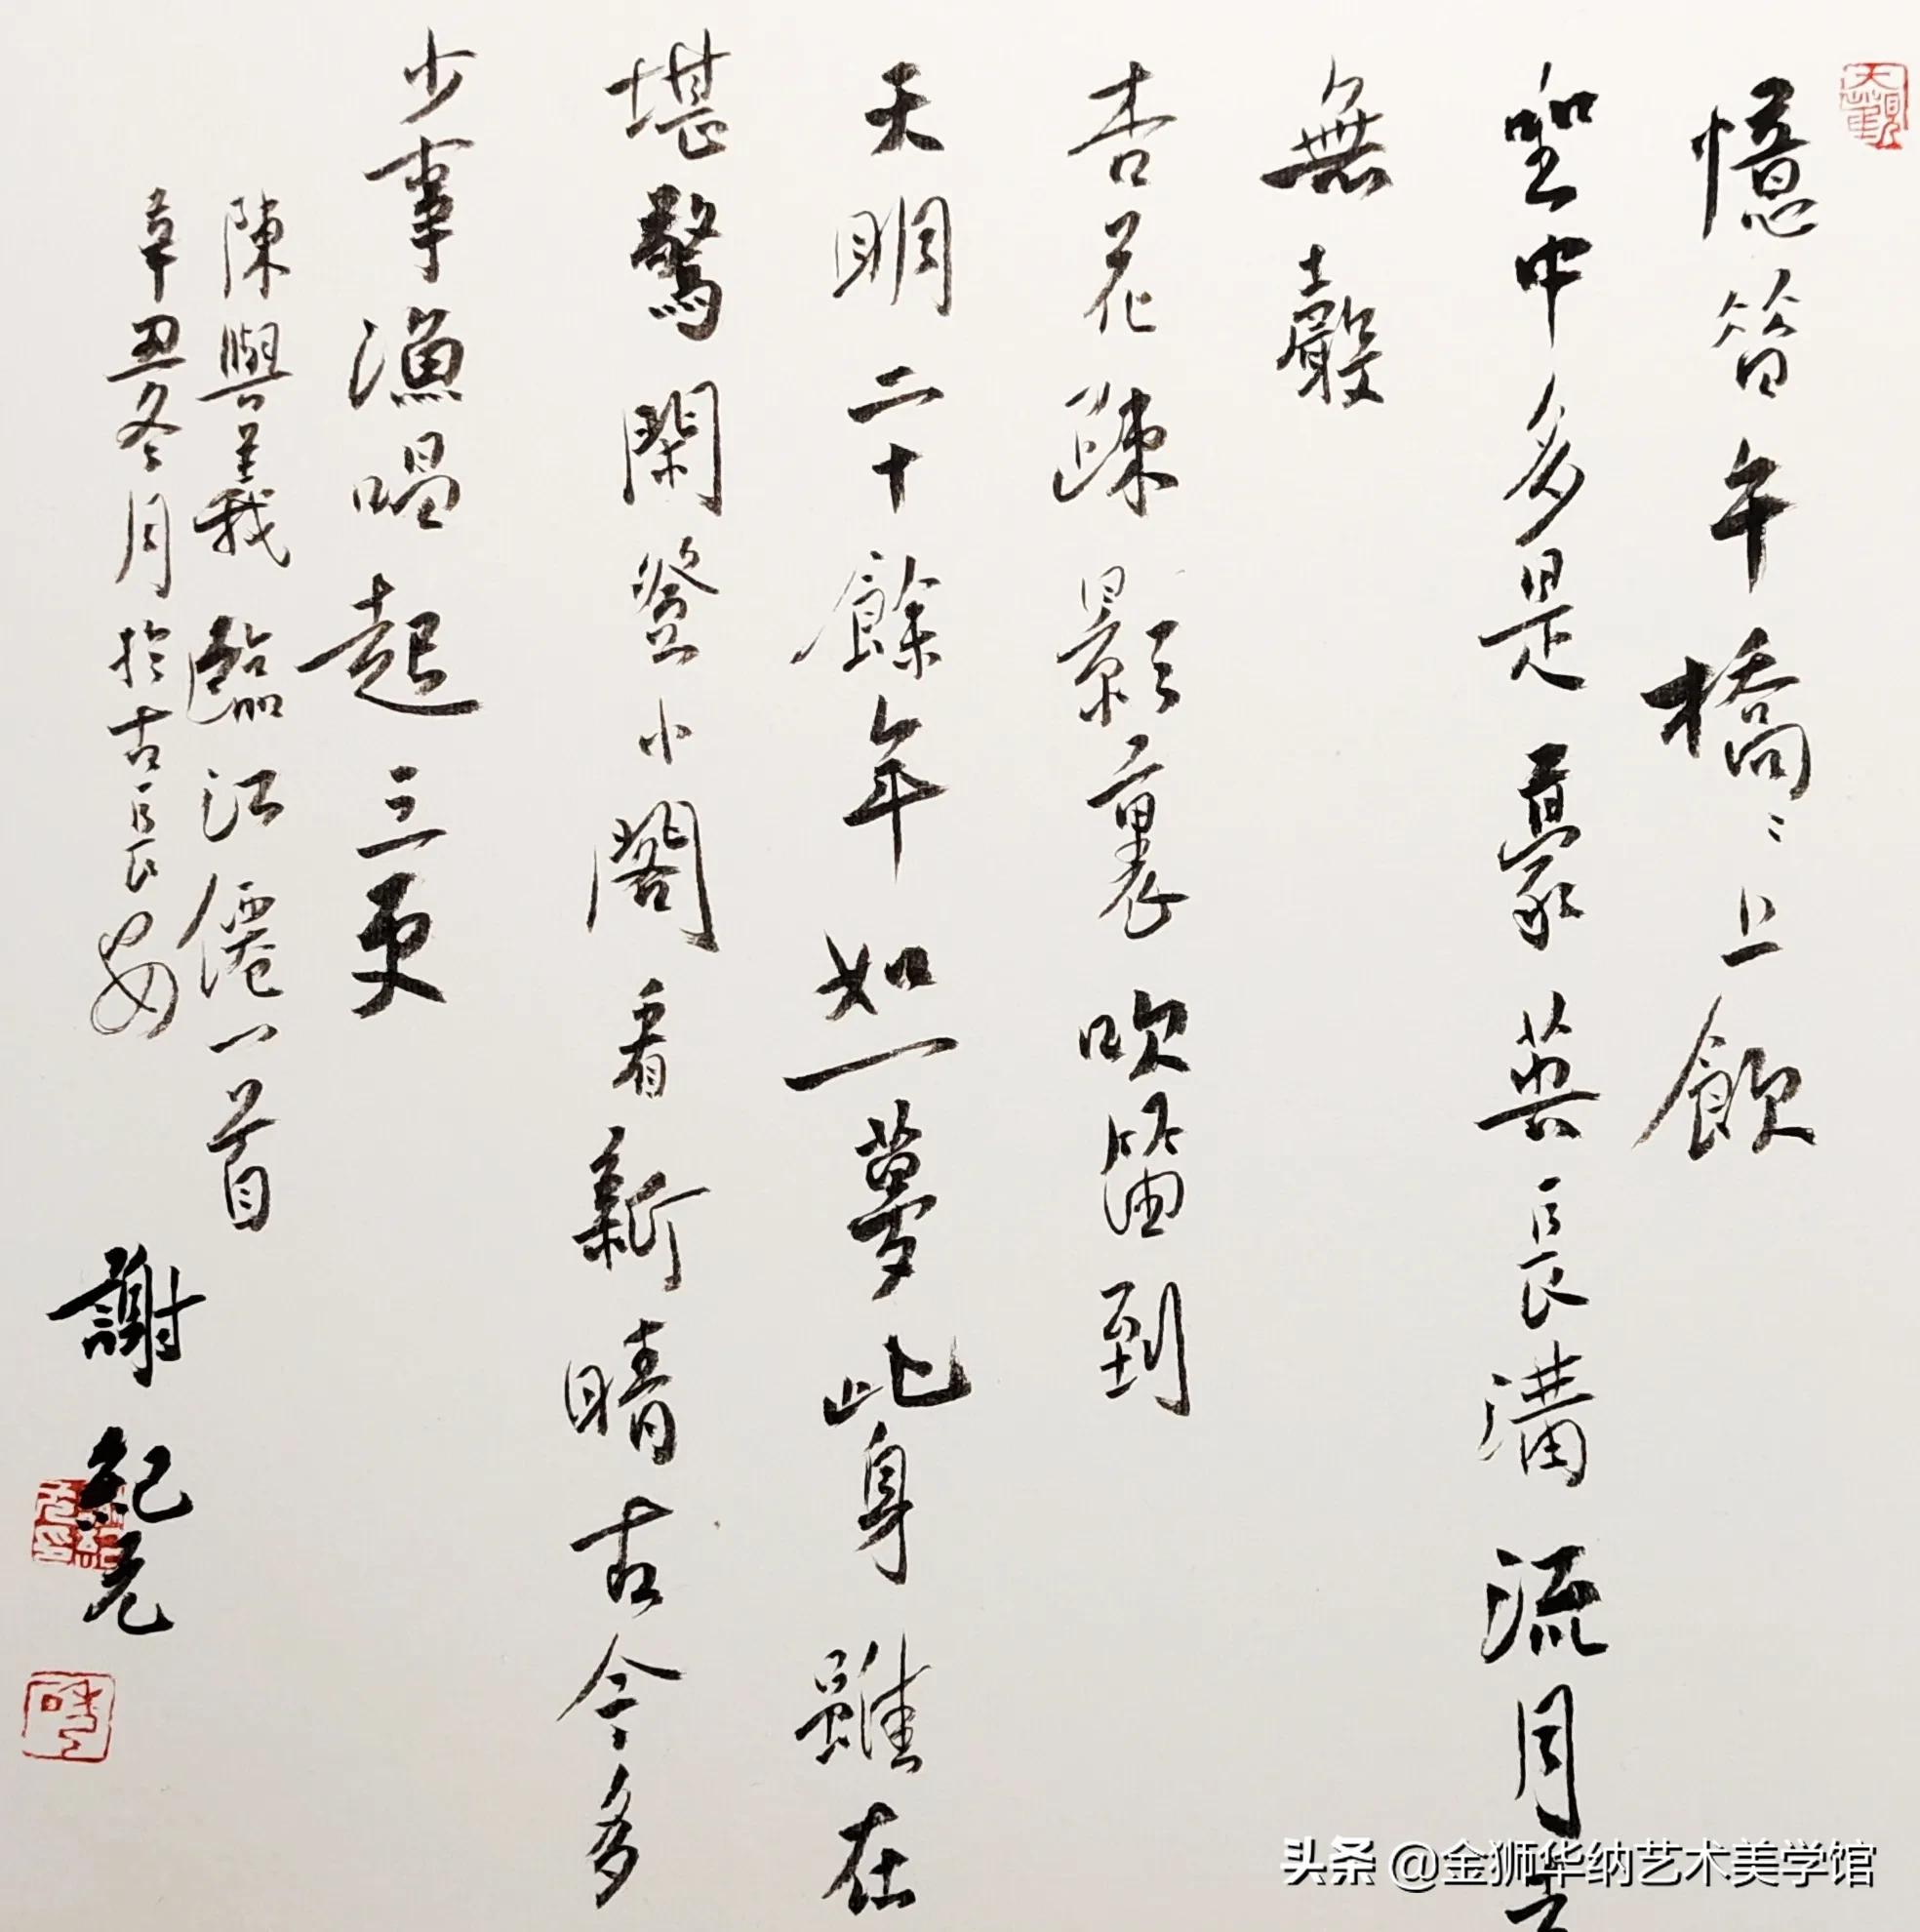 憶昔午橋〻上飲
坐中多是豪英長溝流月去
無聲
杏花疎影裏吹笛到
天明二十餘年如一夢此身雖在
堪驚閑登小閣看新晴古今多
少事漁唱起三更
陳與義臨江僊一首
辛丑冬月於古長安
謝紀元
头条 @金狮华纳艺术美学馆